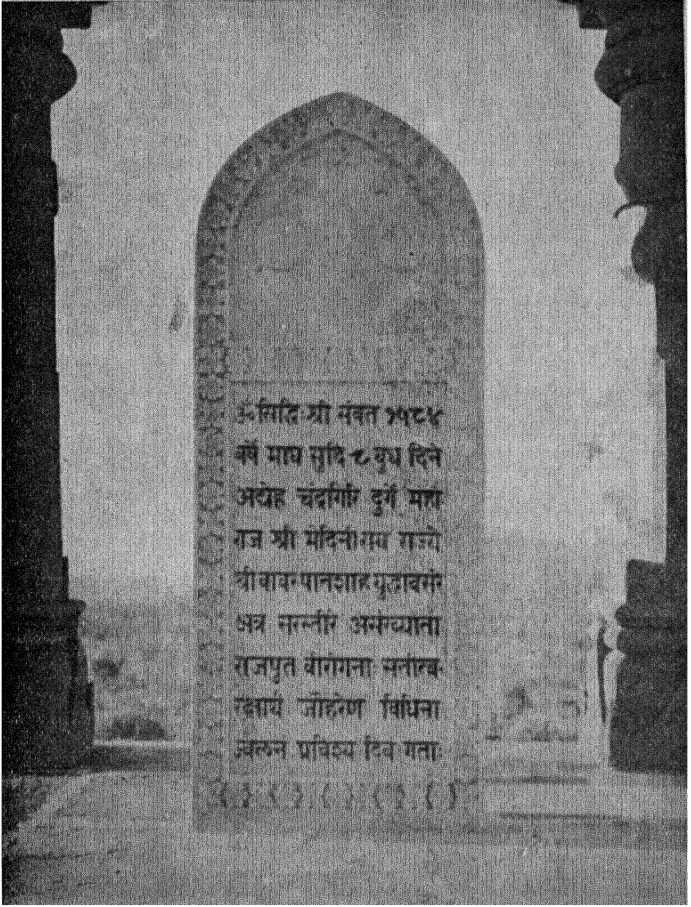 ॐ सिद्धिः श्री संवत १५८४
वर्षे माघ सुदि ८ बुध दिने
अद्येह चंद्रगिरि दुर्गे महा
राज श्री मेदिनीराय राज्ये
श्री बाबर पातशाह युद्धावसरे
अत्र सरस्तीरे असंख्याता
राजपुत वीरांगनाः सतीत्व-
रक्षार्थ जौहरेण विधिना
ज्वलन प्रविश्य दिवं गताः